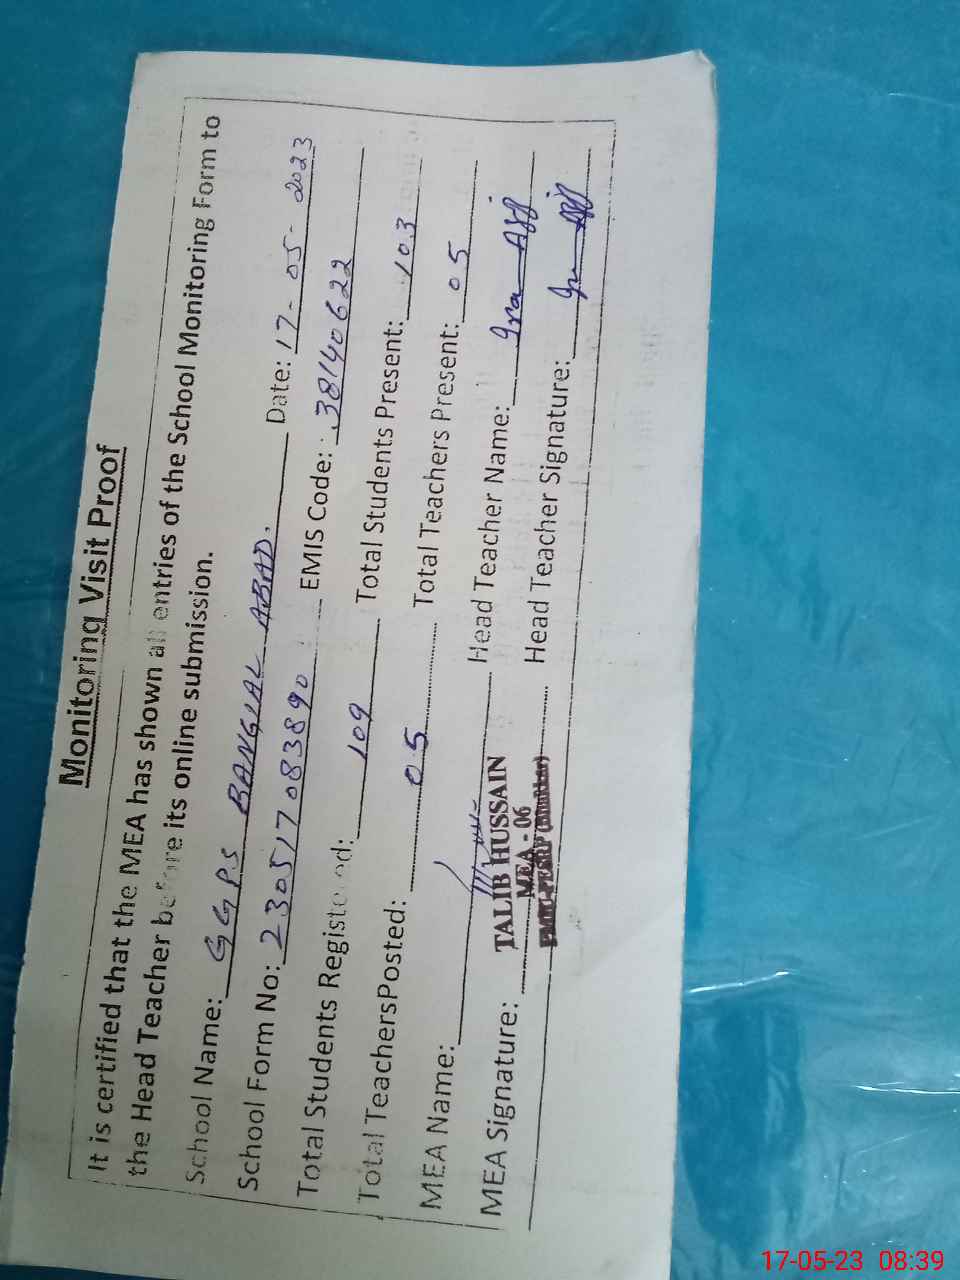 Monitoring Visit Proof
It is certified that the MEA has shown all entries of the School Monitoring Form to
the Head Teacher before its online submission.
School Name: GGPS BANGIAL ABAD. Date: 17-05-2023
School Form No: 230517083890 EMIS Code: 38140622
Total Students Registered: 109 Total Students Present: 103
Total TeachersPosted: 05 Total Teachers Present: 05
MEA Name: Head Teacher Name: Ira
MEA Signature: Head Teacher Signature:
TALIB HUSSAIN
MEA - 06
17-05-23 08:39